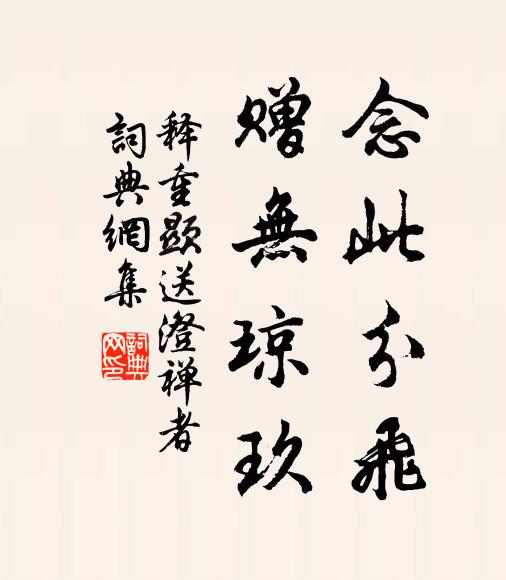 念此分飛
贈無琼玖
释重顯送澄禅者
詞典網集
詞典
网印